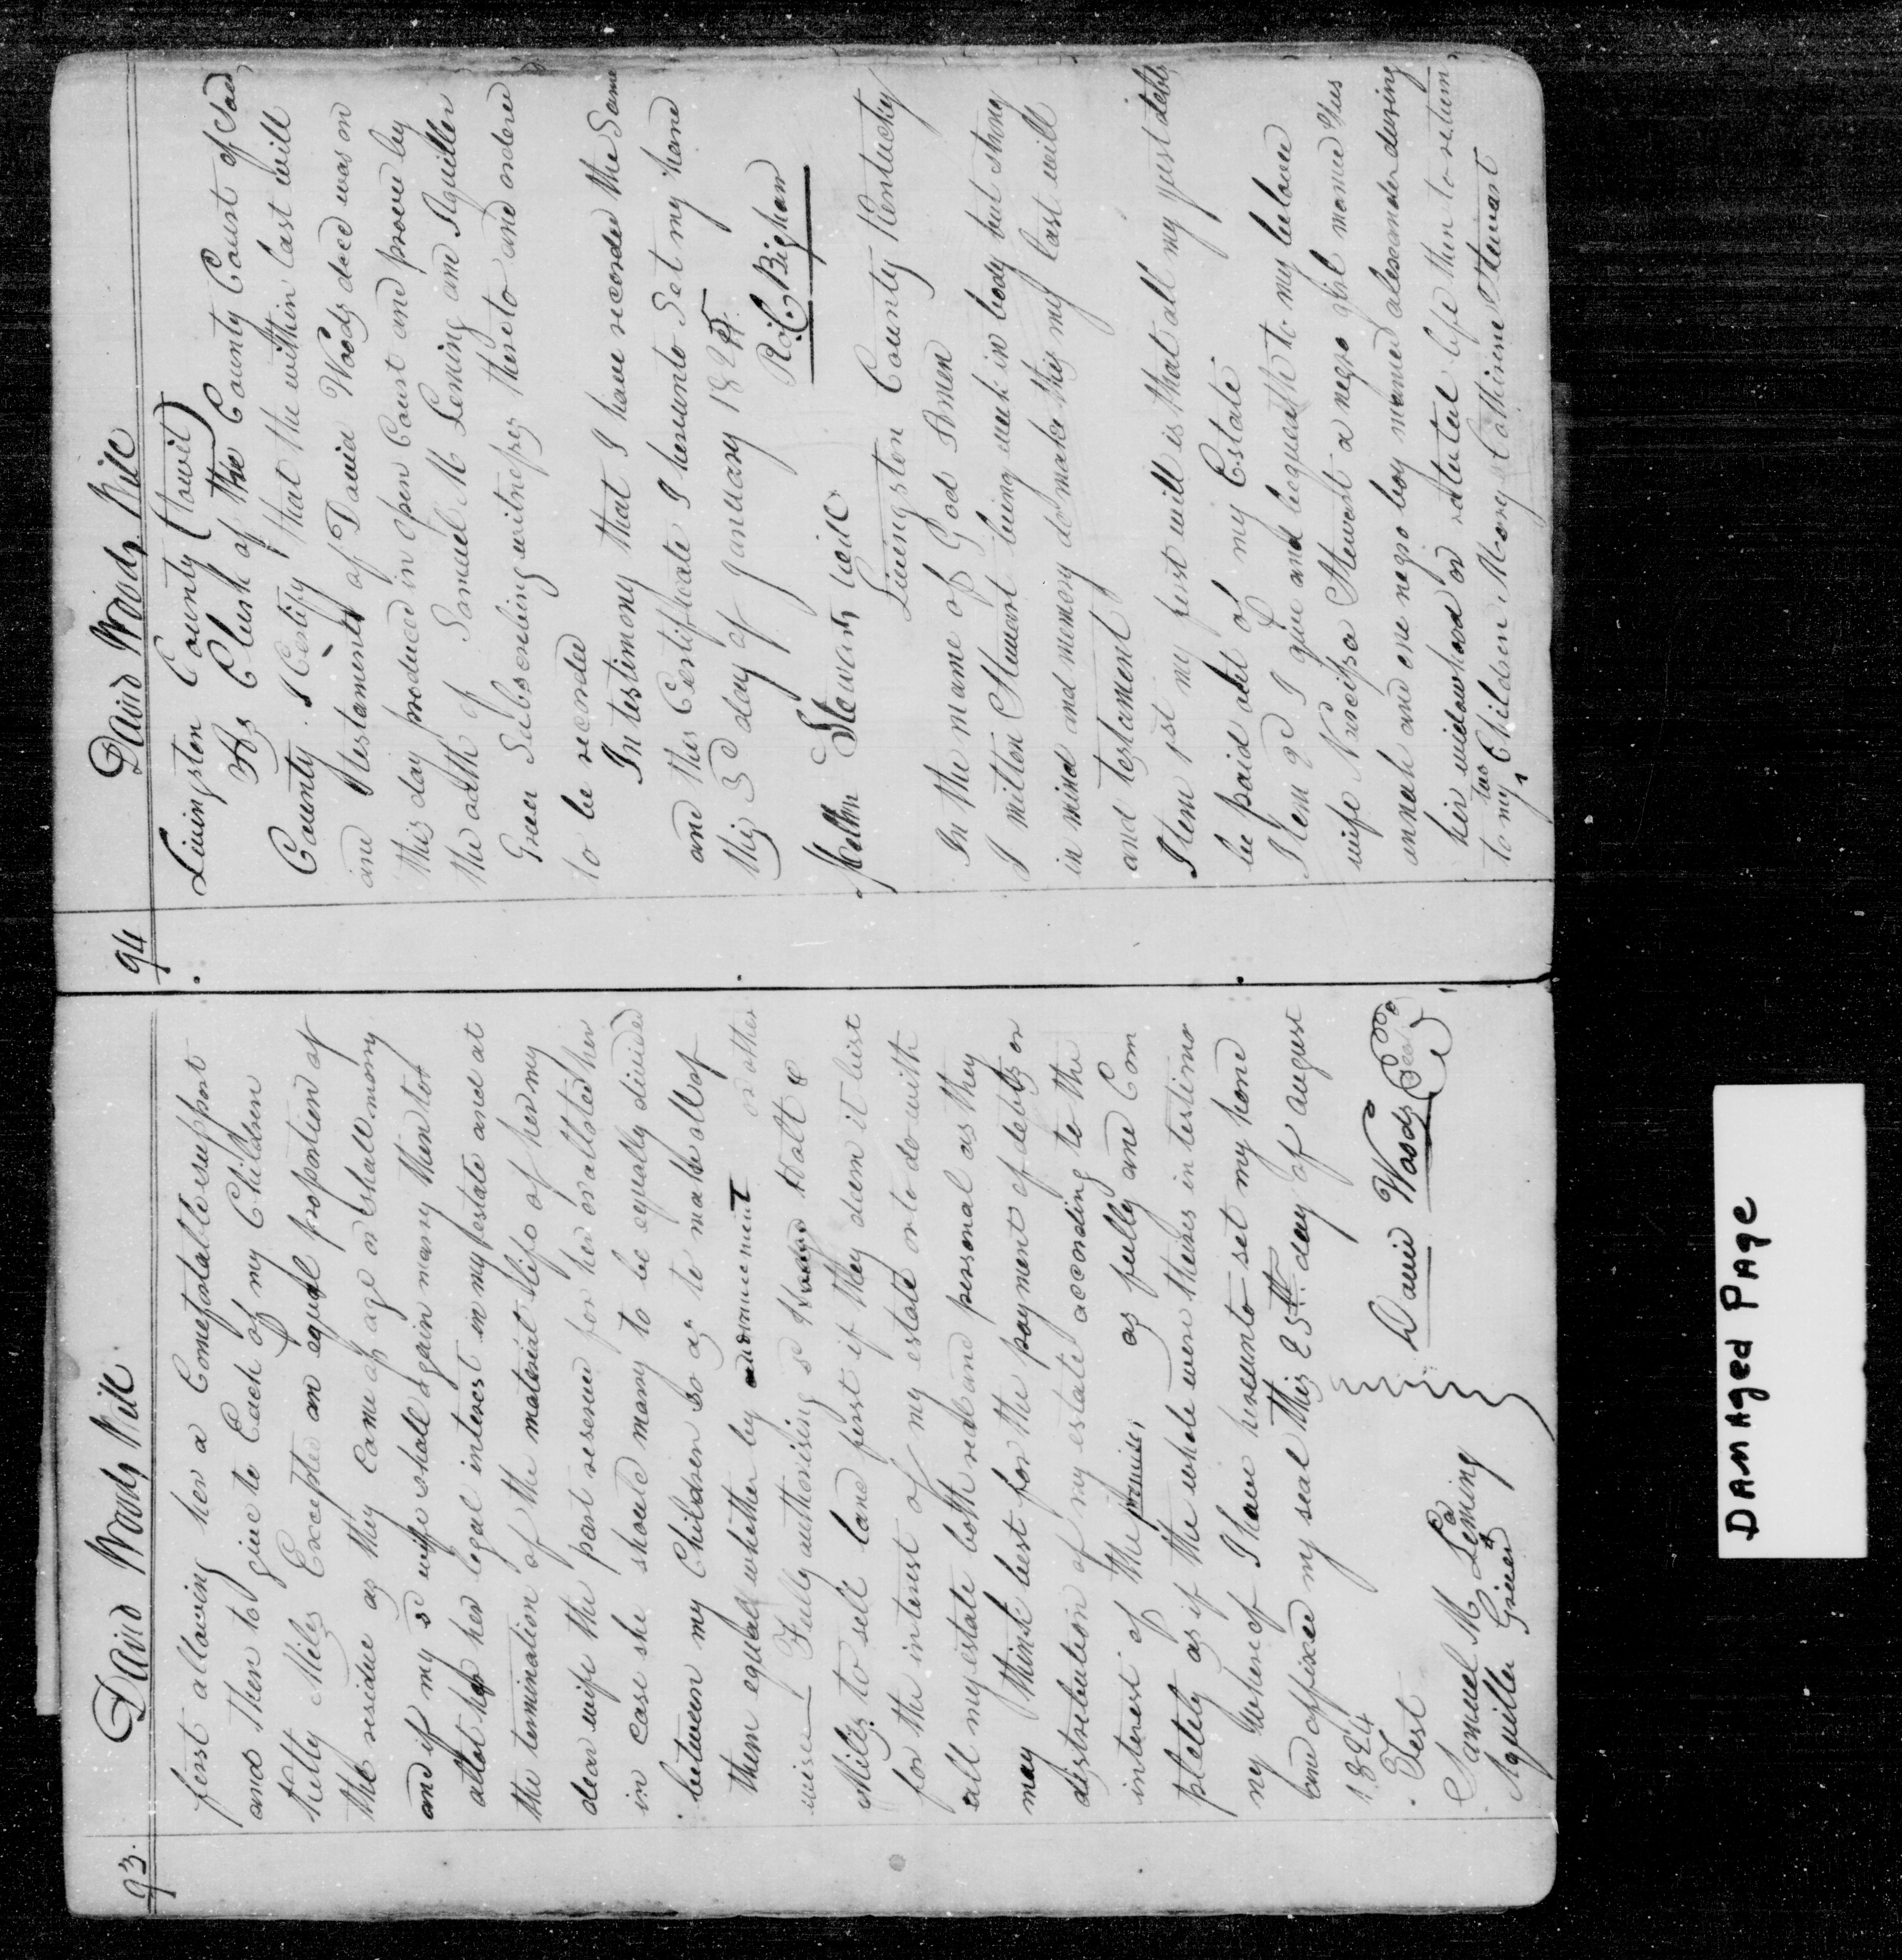 93. David Woods Will
first allowing her a Comefortable support
and then to give to Each of my Children
Kitty Miles Excepted an equal proportion of
the residue as they Come of age or shall marry
and if my sd wife shall again marry then to
allot her her legal interest in my estate and at
the termination of the material life of her my
dear wife the part reserved for her or allotted her
in case she should marry to be equally divided
between my Children so as to make all of
them equal whether by advancement or other
wise I Fully authorising sd Hatt &
Miles to sell land first if they deem it best
for the interest of my estate or to do with
all my estate both real and personal as they
may think best for the payment of debts or
distribution of my estate according to the
interest of the premises as fully and Com
pletely as if the whole were theirs in testimo
ny whereof I have hereunto set my hand
and affixed my seal this 25th day of august
1824
David Woods Seal
Test
Samuel M Leming
Aquilla Greer
94 David Woods Will
Livingston County (towit)
As Clerk of the County Court of Sad
County I Certify that the within last will
and testament of David Woods decd was on
this day produced in open Court and proved by
the oath of Samuel M Leming and Aquiller
Greer Subscribing witnesses thereto and ordered
to be recorded
In testimony that I have recorded the Same
and this Certificate I hereunto Set my hand
this 3d day of January 1825
R. C. Bigham
Meltn Stewarts will
Livingston County Kentucky
In the name of God Amen
I milton Stewart being week in body but strong
in mind and memory do make this my last will
and testament
Item 1st my first will is that all my just debts
be paid out of my Estate
Item 2d I give and bequeath to my belove
wife Narcissa Stewart a negro ghil
annah and one negro boy mamed alexsander during
her widowhood or naturiel life then to return
to my two Children Mary Cathirine Stewart
Damaged Page